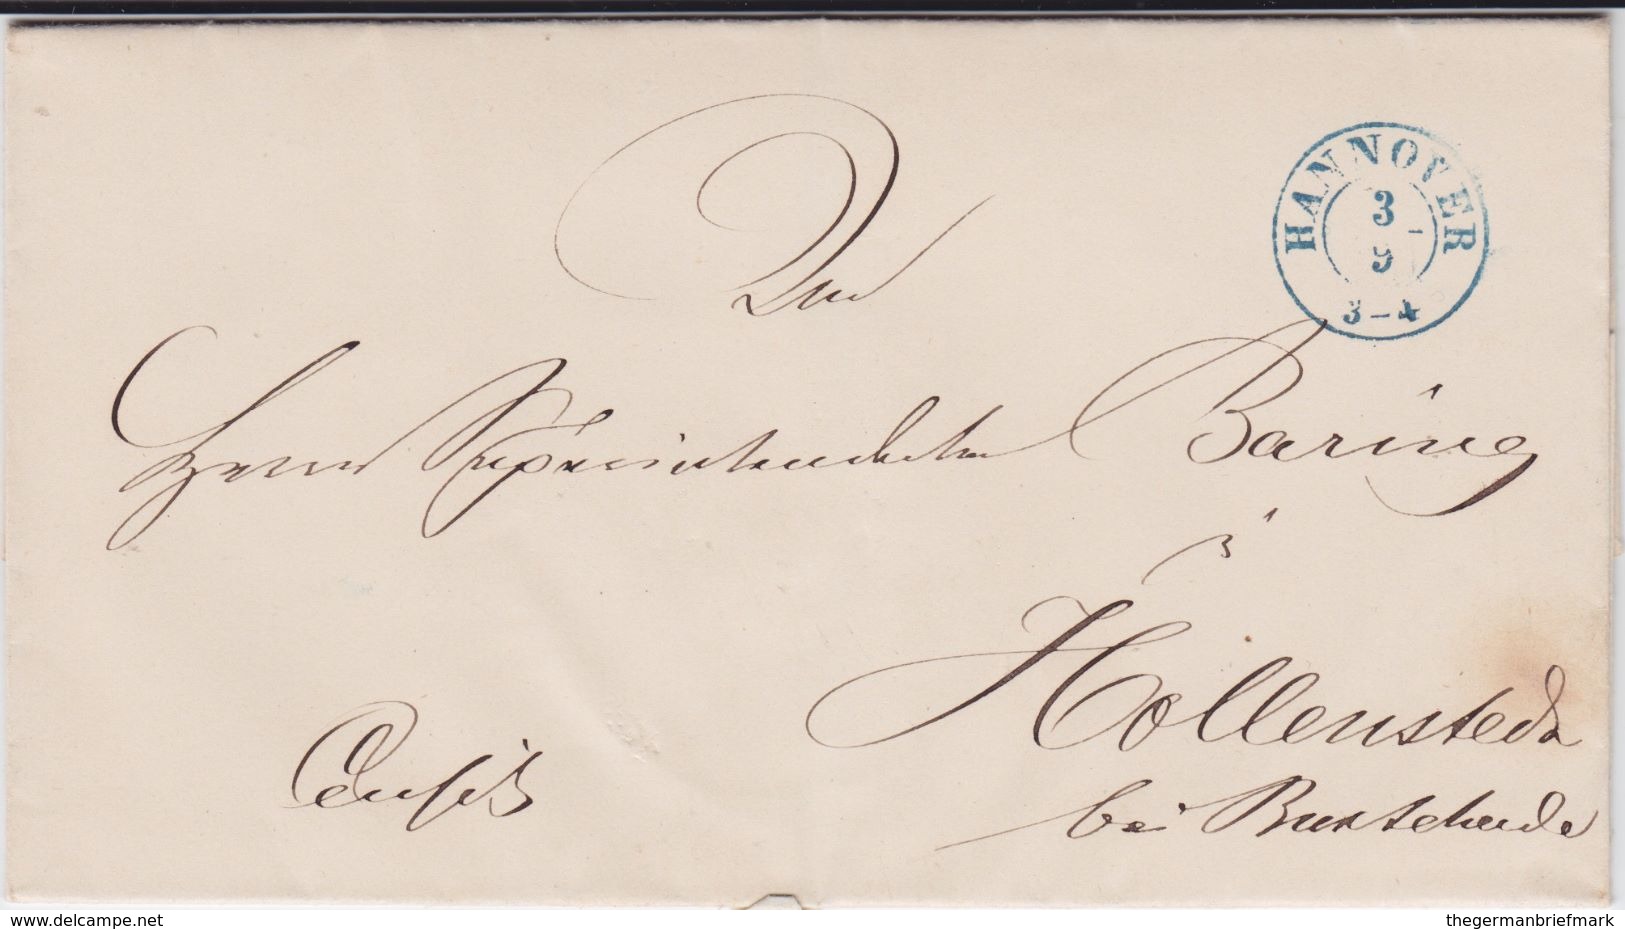 HANNOVER
3
9
3-4
Dem
Herrn Superintendenten Baring
z
Hollenstedt
bei Buxtehude
delcampe.net
thegermanbriefmark